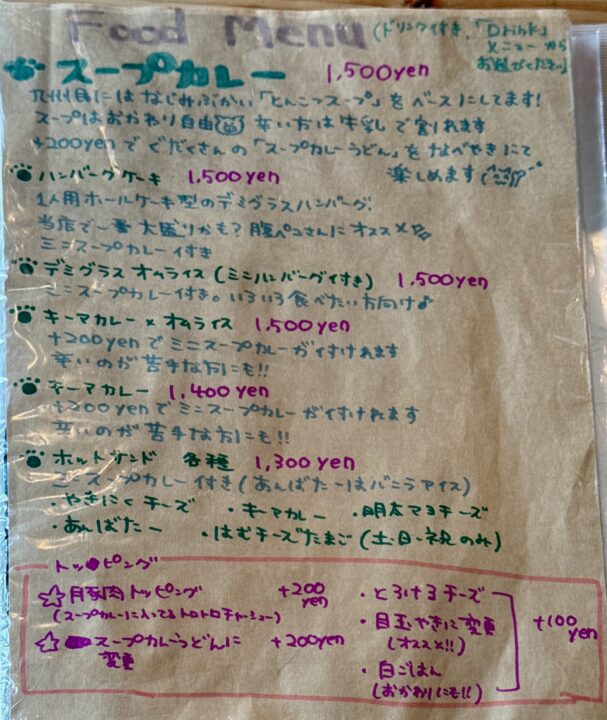 Food Menu (ドリンク付き、「Drink」
メニューから
お選びください)
スープカレー 1,500yen
九州民にはなじみぶかい「とんこつスープ」をベースにしてます!
スープはおかわり自由 辛い方は牛乳で割れます
+200yenで ぐだくさんの「スープカレーうどん」をなべやきにて
楽しめます
ハンバーグケーキ 1,500yen
1人用ホールケーキ型のデミグラスハンバーグ。
当店で一番大盛りかも?腹ペコさんにオススメ
ミニスープカレー付き
デミグラスオムライス(ミニハンバーグ付き) 1,500yen
ミニスープカレー付き。いろいろ食べたい方向け♪
キーマカレー×オムライス 1,500yen
+200yenでミニスープカレーが付けれます
辛いのが苦手な方にも!!
キーマカレー 1,400yen
+200yenでミニスープカレーが付けれます
辛いのが苦手な方にも!!
ホットサンド 各種 1,300yen
ミニスープカレー付き(あんばたーはバニラアイス)
・やきにくチーズ ・キーマカレー ・明太マヨチーズ
・あんばたー ・はむチーズたまご(土・日・祝のみ)
トッピング
☆豚肉トッピング +200yen
(スープカレーに入ってるトロトロチャーシュー)
☆スープカレーうどんに変更 +200yen
・とろけるチーズ
・目玉やきに変更
(オススメ!!)
・白ごはん
(おかわりにも!!)
+100yen